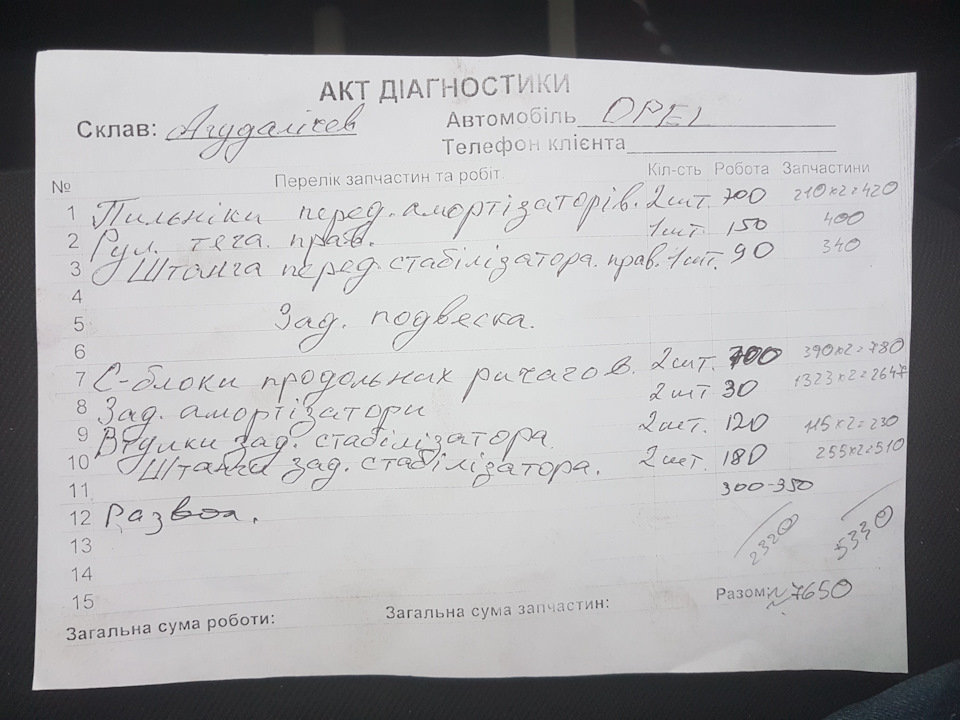 АКТ ДІАГНОСТИКИ
Склав: Автомобіль OPEL
Телефон клієнта
№ Перелік запчастин та робіт Кіл-сть Робота Запчастини
1 Пильніки перед. амортізаторів. 2шт. 700 210x2=420
2 Рул. тяга. прав. 1шт. 150 400
3 Штанга перед. стабілізатора. прав. 1шт. 90 340
4
5 Зад. подвеска.
6
7 С-блоки продольних ричагов. 2шт. 700 390x2=780
8 Зад. амортізатори 2шт 30 1323x2=2647
9 Втулки зад. стабілізатора 2шт. 120 115x2=230
10 Штанги зад. стабілізатора. 2шт. 180 255x2=510
11 300-350
12 Развал.
13 2320 5330
14
15
Разом: ~7650
Загальна сума роботи: Загальна сума запчастин: